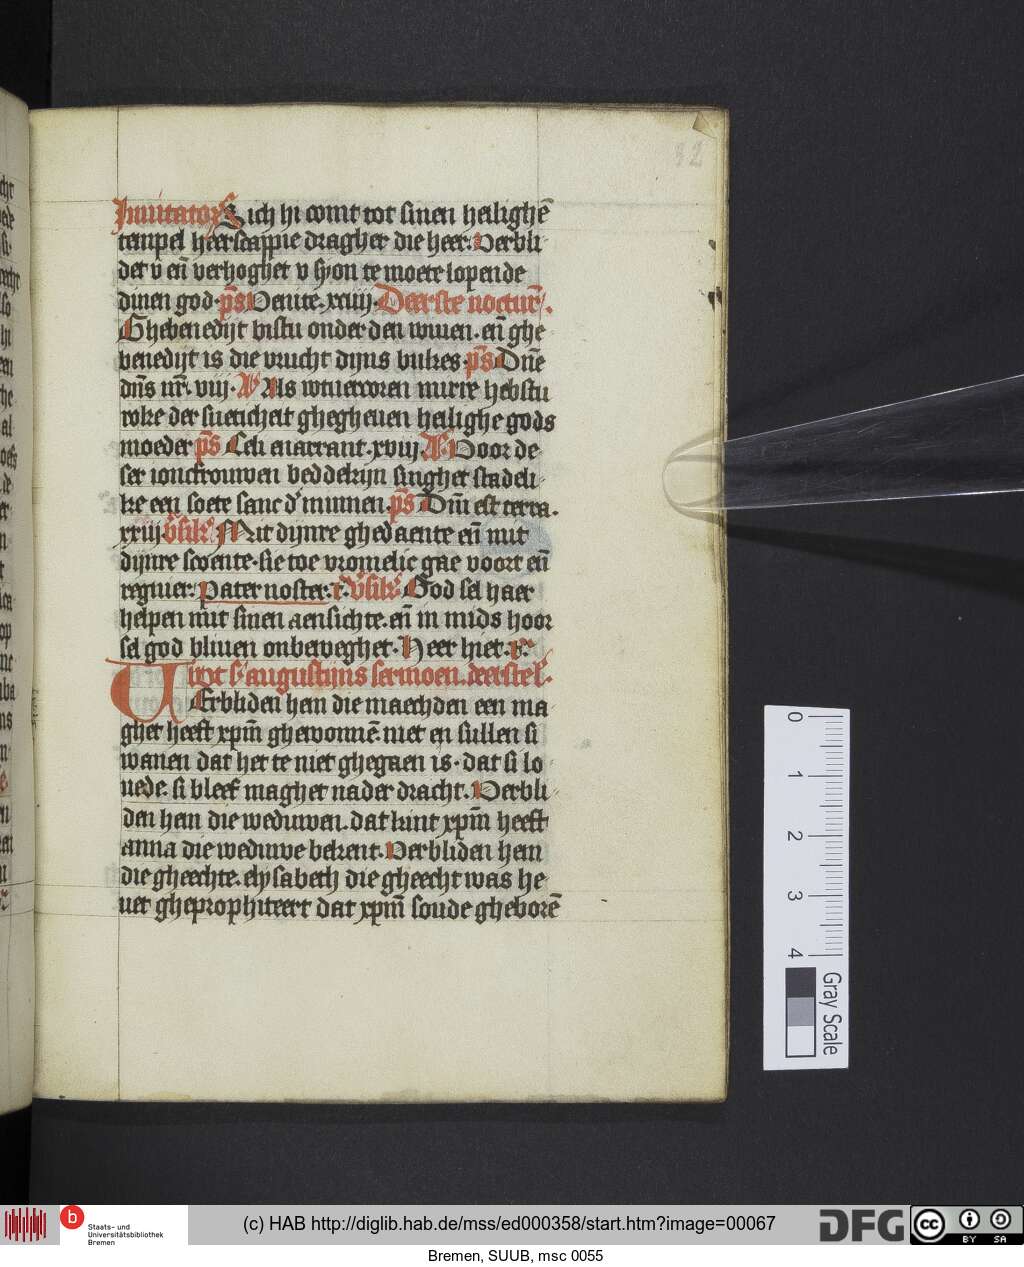 32
Inuitatorẜ Sich hi comt tot sinen heilighē
tempel heerscappie dragher die heer. Verbli
det v eñ verhoghet v syon te moete lopende
dinen god. ps̄ Venite. xciiij. Deerste noctur̄.
Ghebenedijt bistu onder den wiuen. eñ ghe
benedijt is die vrucht dijns bukes. ps̄ Dñe
dñs nr̄. viij. Aͦ Als wtuercoren mirre hebstu
roke der sueticheit ghegheuen heilighe gods
moeder ps̄ Celi enarrant. xviij. Aͦ. Voor de
ser ioncfrouwen beddekijn singhet stadeli
ke een soete sanc d' minnen. ps̄ Dñi est terra.
xxiij. v̄silꝰ. Mit dijnre ghedaente eñ mit
dijnre scoente. sie toe vromelic gae voort eñ
regnier. Pater noster. r̄. v̄silꝰ. God sel haer
helpen mit sinen aensichte. eñ in mids hoor
sel god bliuen onbeweghet. Heer hiet. r̄.
Wt sͭ augustijns sermoen. deerste lͨ.
VErbliden hem die maechden een ma
ghet heeft xpm̄ ghewonnē niet en sullen si
wanen dat het te niet ghegaen is. dat si lo
uede. si bleef maghet na der dracht. Verbli
den hem die weduwen. dat kint xpm̄ heeft
anna die weduwe bekent. Verbliden hem
die gheechte. elysabeth die gheecht was he
uet ghepropheteert dat xpm̄ soude gheborē
0
1
2
3
4
Gray Scale
Staats- und
Universitätsbibliothek
Bremen
(c) HAB http://diglib.hab.de/mss/ed000358/start.htm?image=00067
DFG
cc BY SA
Bremen, SUUB, msc 0055